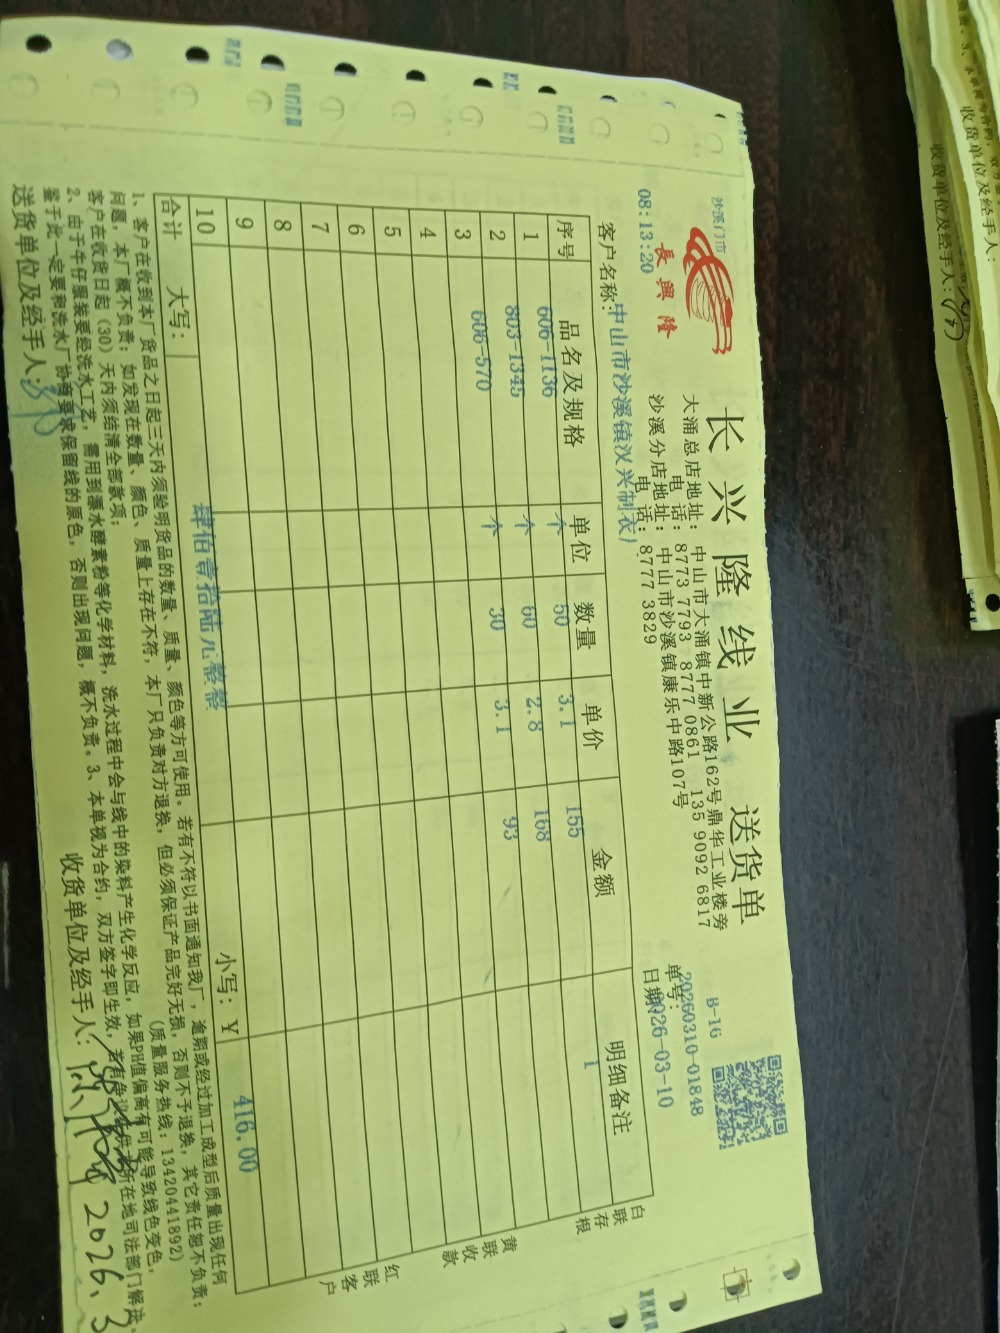 沙溪门市
長興隆
08:13:20
长兴隆线业 送货单
大涌总店地址：中山市大涌镇中新公路162号鼎华工业楼旁
电话：8773 7793 8777 0861 135 9092 6817
沙溪分店地址：中山市沙溪镇康乐中路107号
电话：8777 3829
B-1G
单号：20260310-01848
日期：2026-03-10
客户名称：中山市沙溪镇汉兴制衣厂
序号 品名及规格 单位 数量 单价 金额 明细备注
1 606-1136 个 50 3.1 155 1
2 803-1345 个 60 2.8 168
3 606-570 个 30 3.1 93
4
5
6
7
8
9
10
合计 大写：肆佰壹拾陆元整整 小写：￥ 416.00
白联存根
黄联收款
红联客户
1、客户在收到本厂货品之日起三天内须验明货品的数量、质量、颜色等方可使用。若有不符以书面通知我厂，逾期或经过加工成型后质量出现任何
问题，本厂概不负责；如发现在数量、颜色、质量上存在不符，本厂只负责对方退换，但必须保证产品完好无损，否则不予退换，其它责任恕不负责；
客户在收货日起（30）天内须结清全部款项； （质量服务热线：13420441892）
2、由于牛仔服装要经洗水工艺，需用到漂水酵素粉等化学材料，洗水过程中会与线中的染料产生化学反应，如果PH值偏高有可能导致线色变色，
鉴于此一定要和洗水厂协商要求保留线的原色，否则出现问题，概不负责。3、本单视为合约，双方签字即生效，若有争议 供方所在地司法部门解决。
送货单位及经手人：
收货单位及经手人： 2026.3
收货单位及经手人：
收货单位及经手人：